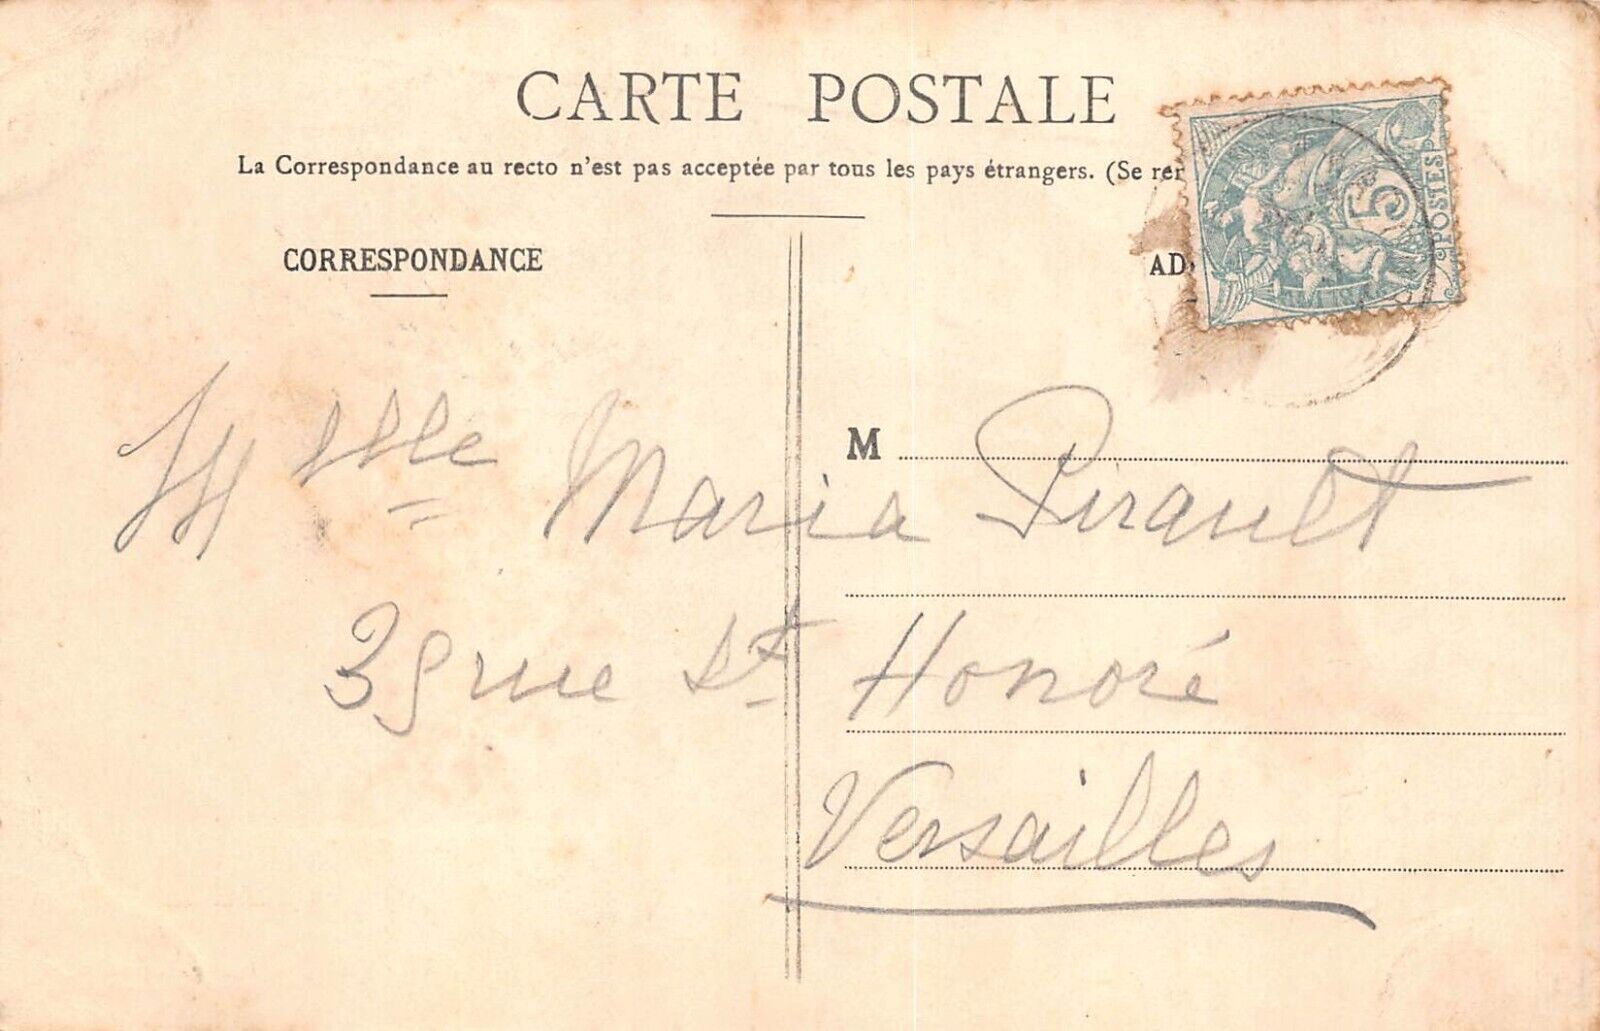 CARTE POSTALE
La Correspondance au recto n'est pas acceptée par tous les pays étrangers. (Se rer
CORRESPONDANCE
AD
5
POSTES
M
Mlle Maria Pirault
39 rue St Honoré
Versailles